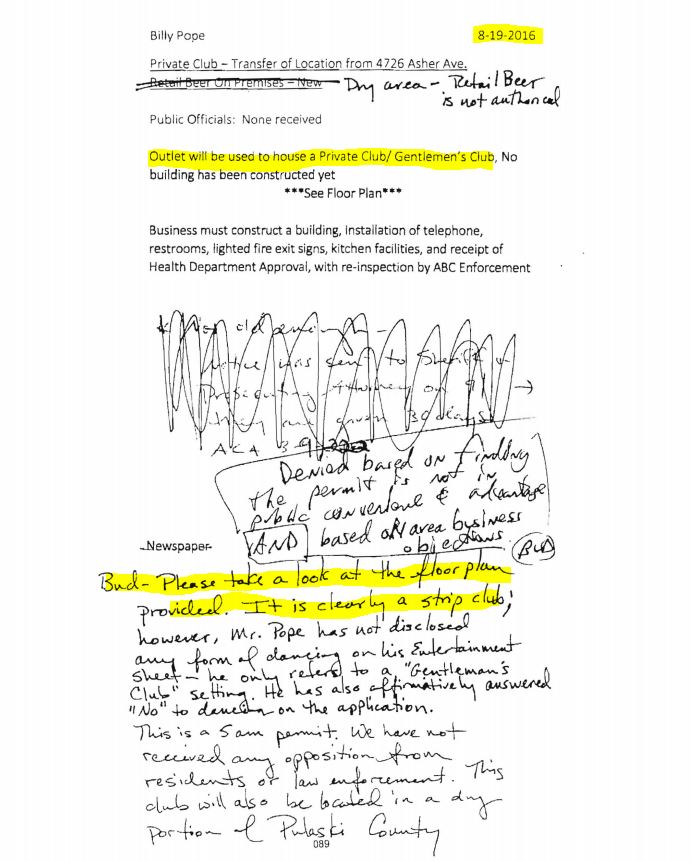 Billy Pope
8-19-2016
Private Club – Transfer of Location from 4726 Asher Ave.
Retail Beer On Premises – New Dry area - Retail Beer
is not authorized
Public Officials: None received
Outlet will be used to house a Private Club/ Gentlemen's Club, No
building has been constructed yet
***See Floor Plan***
Business must construct a building, installation of telephone,
restrooms, lighted fire exit signs, kitchen facilities, and receipt of
Health Department Approval, with re-inspection by ABC Enforcement
Notice was sent to Sheriff &
Prosecuting Attorney on
they are given 30 days
ACA 3-9-
Denied based on finding
the permit is not in
public convenience & advantage
AND based on area business
objections.
BUD
Newspaper
Bud- Please take a look at the floor plan
provided. It is clearly a strip club;
however, Mr. Pope has not disclosed
any form of dancing on his Entertainment
sheet - he only refers to a "Gentleman's
Club" setting. He has also affirmatively answered
"No" to dancing on the application.
This is a 5am permit. We have not
received any opposition from
residents or law enforcement. This
club will also be located in a dry
portion of Pulaski County
089